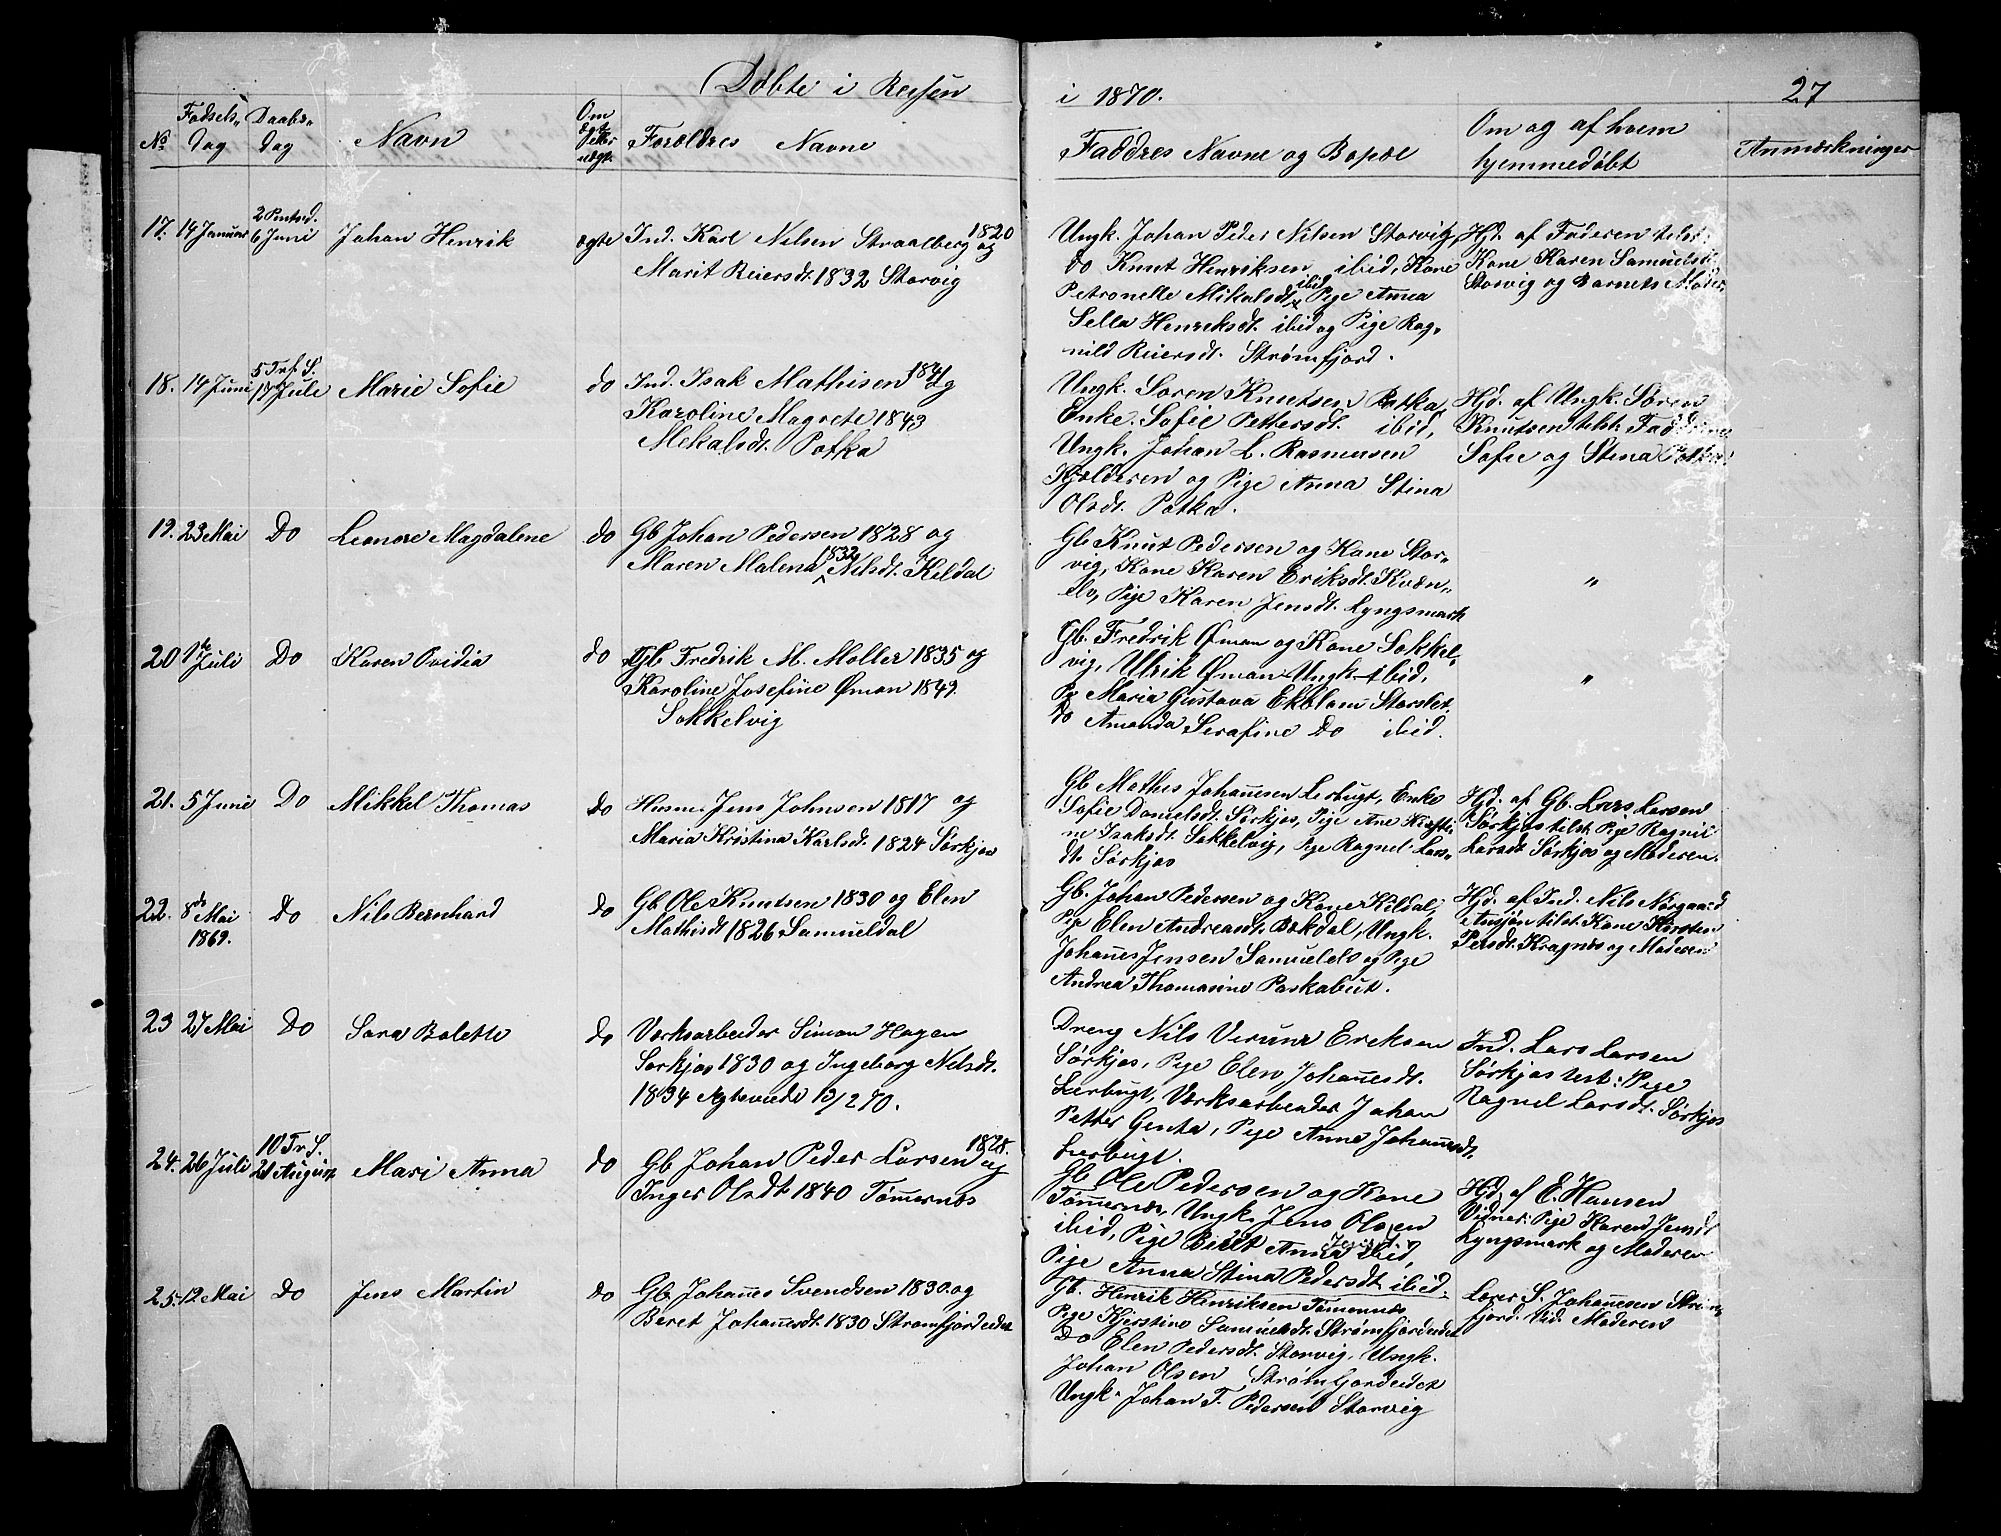 Døbte i Reisen
i 1870.
27
No
Fødsels-
Dag
Daabs-
Dag
Navn
Om
ægte
eller
uægte
Forældres Navne
Faddres Navne og Bopæl
Om og af hvem
hjemmedøbt
Anmærkninger
17. 14 Januar
2 Pintsed.
6 Juni
Johan Henrik
ægte
Ind. Karl Nilsen Straalberg 1820 og
Marit Reiersdt. 1832 Storvig
Ungk. Johan Peder Nilsen Storvig,
do Knut Henriksen ibid, Kone
Petronelle Mikalsdt. ibid, Pige Anna
Sella Henriksdt. ibid og Pige Rag-
nild Reiersdt. Strømfjord.
Hjd. af Faderen tilst.
Kone Karen Samuelsdt.
Storvig og Barnets Moder
18. 14 Juni
5 Trf. S.
17 Juli
Marie Sofie
do
Ind. Isak Mathisen 1841 og
Karoline Magrete 1843
Mekalsdt. Potka
Ungk. Søren Knutsen Potka,
Enke. Sofie Pettersdt. ibid,
Ungk. Johan L. Rasmusen
Kjelderen og Pige Anna Stina
Olsdt. Potka.
Hjd. af Ungk. Søren
Knutsen tilst. Fadderne
Sofie og Stina Potka
19. 23 Mai
Do
Leonore Magdalene
do
Gb Johan Pedersen 1828 og
Maren Malena 1832 Nilsdt. Kildal
Gb Knut Pedersen og Kone Stor-
vig, Kone Karen Eriksdt. Kvæn-
elv, Pige Karen Jensdt. Lyngsmark
"
20 1ste Juli
Do
Karen Ovidia
do
Gb Fredrik M. Møller 1835 og
Karoline Josefine Øman 1849.
Sokkelvig
Gb. Fredrik Øman og Kone Sokkel-
vig, Ulrik Øman Ungk. ibid,
Pg Maria Gustava Ekblom Storslet.
Do Amanda Serafine Do ibid.
"
21. 5 Juni
Do
Mikkel Thomas
do
Husm. Jens Johnsen 1817 og
Maria Kristina Karlsdt. 1824 Sørkjos
Gb Mathis Johannesen Lerbugt, Enke
Sofie Danielsdt. Sørkjos, Pige Ane Kristi-
ne Isaksdt. Sokkelvig, Pige Ragnel Lars-
dt. Sørkjos
Hjd. af Gb. Lars Larsen
Sørkjos tilst. Pige Ragnil
Larsdt. Sørkjos og Moderen.
22. 8de Mai
1869.
Do
Nils Bernhard
do
Gb Ole Knutsen 1830 og Elen
Mathisdt. 1826 Samueldal
Gb. Johan Pedersen og Kone Kildal,
Pige Elen Andreasdt. Bækdal, Ungk.
Johannes Jensen Samuelelv og Pige
Andrea Thomasine Paskabut.
Hjd. af Ind. Nils Nørgaard
tilst. Kone Kirsten
Persdt. Kragnæs og Moderen
23 27 Mai
Do
Sara Bolette
do
Værksarbeider Simon Hagen
Sørkjos 1830 og Ingeborg Nilsdt.
1834 Ægteviede 13/2 70.
Dreng Nils Eriksen
Sørkjos, Pige Elen Johannesdt.
Lerbugt, Værksarbeider Johan
Petter Genta, Pige Anne Johannesdt.
Lerbugt.
Ind. Lars Larsen
Sørkjos test: Pige
Ragnel Larsdt. Sørkjos
24. 26 Juli
10 Tr. S.
21 August
Mari Anna
do
Gb Johan Peder Larsen 1828. og
Inger Olsdt. 1840 Tømernes
Gb Ole Pedersen og Kone
Tømmernes, Ungk. Jens Olsen
ibid, Pige Berit Anna Jensdt. ibid,
Pige Anna Stina Pedersdt. ibid.
Hjd. af E. Hansen
Vidner: Pige Karen Jensdt.
Lyngsmark og Moderen
25. 12 Mai
Do
Jens Martin
do
Gb. Johannes Svendsen 1830. og
Beret Johannesdt. 1830 Strømfjordeidet
Gb. Henrik Henriksen Tømernes
Pige Kjerstine Samuelsdt. Strømfjordeidet
Do Elen Pedersdt. Storvig, Ungk.
Johan Olsen Strømfjordeidet
Ungk. Johan F. Pedersen Storvig
Lærer S. Johannesen Strøm-
fjord. Vid. Moderen